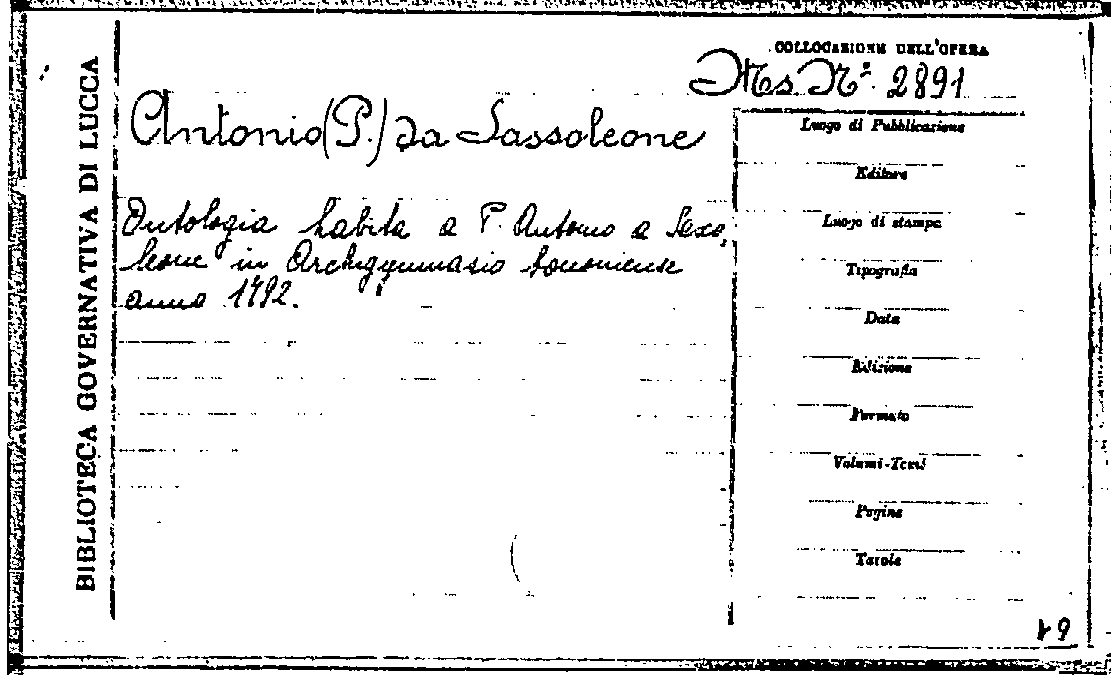 BIBLIOTECA GOVERNATIVA DI LUCCA
COLLOCAZIONE DELL'OPERA
Ms. Nº. 2891
Antonio (P.) da Sassoleone
Ontologia habita a P. Antonio a Saxo,
leone in Archigymnasio bononiense
anno 1792.
Luogo di Pubblicazione
Editore
Luogo di stampa
Tipografia
Data
Edizione
Formato
Volumi-Tomi
Pagine
Tavole